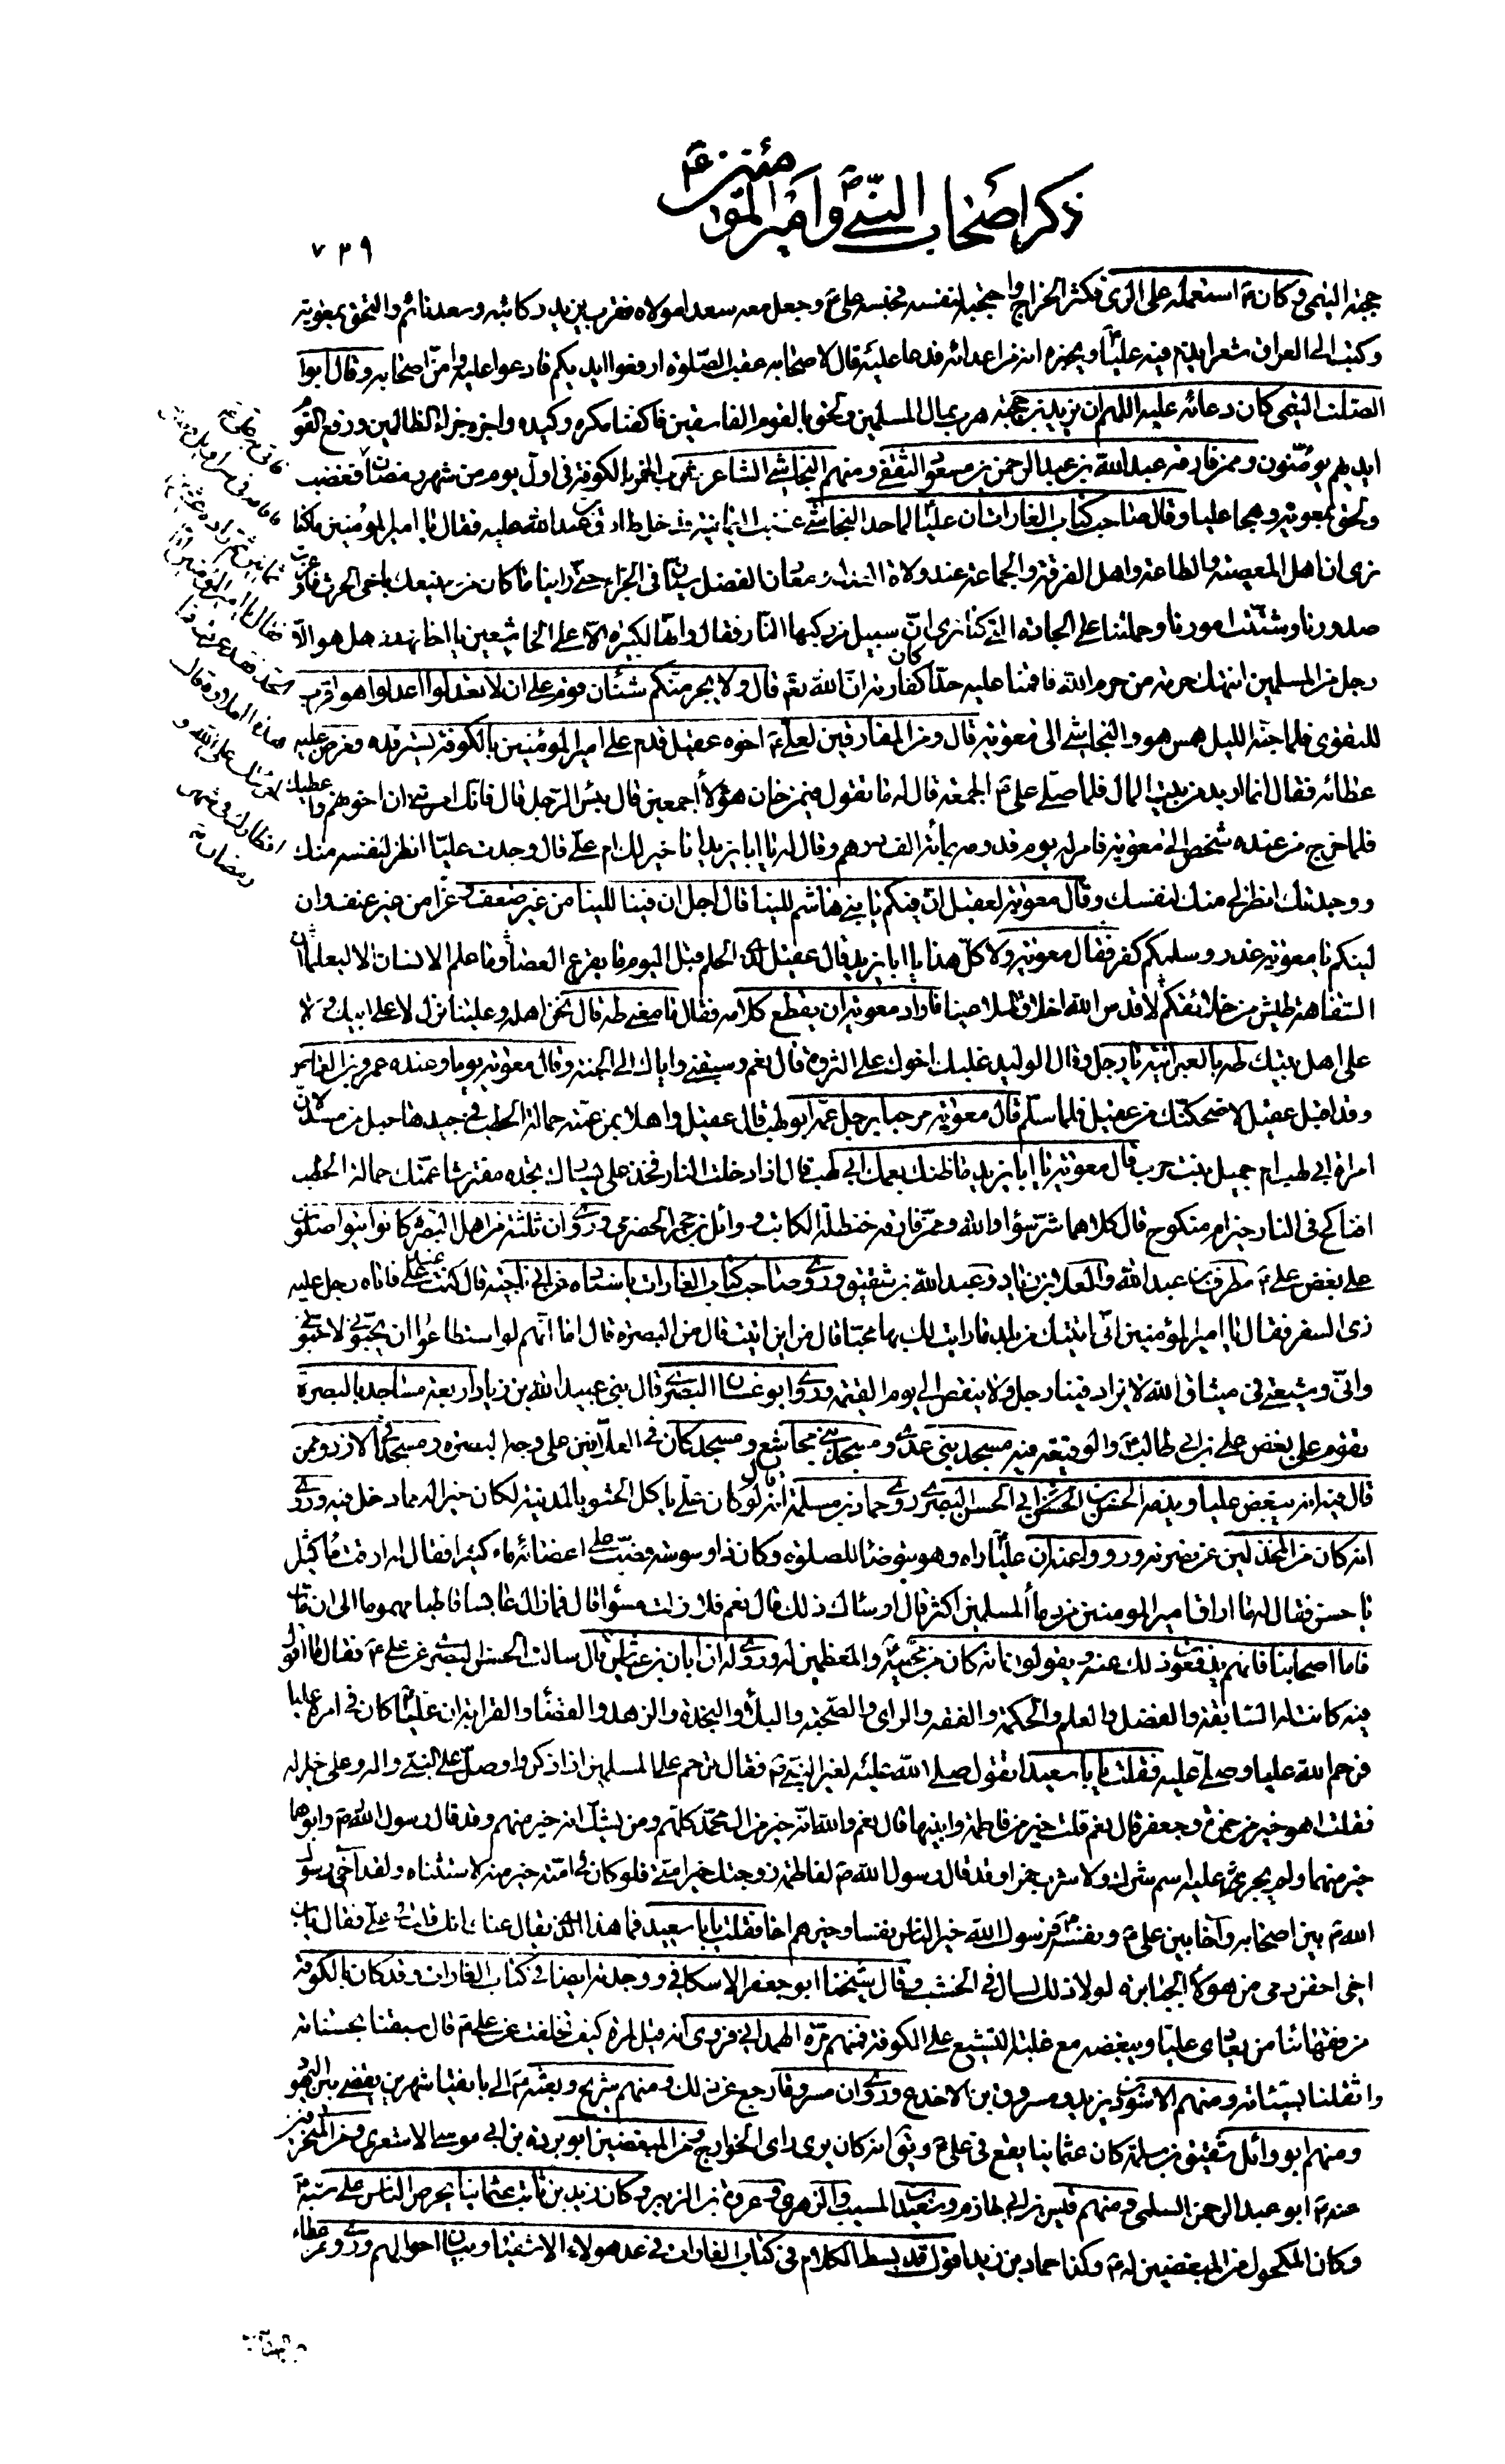 ذكر اصحاب النبي ص وامير المؤمنين ع
٧٣٩
حجية التيمي وكان ع استعمله على الري فكثر الخراج واحتجبه لنفسه فحبسه علي ع وجعل معه سعدا مولاه فقرب يزيد ركائبه وسعد نائم والتحق بمعوية
وكتب الى العراق شعرا يذم فيه عليا ع ويخبره انه من اعدائه فدعا عليه قال لاصحابه عقيب الصلوة ارفعوا ايديكم فادعوا عليه وامن اصحابه وقال ابو
الصلت التيمي كان دعائه عليه اللهم ان يزيد بن حجية هرب بمال المسلمين ولحق بالقوم الفاسقين فاكفنا مكره وكيده واجزه جزاء الظالمين ورفع القوم
ايديهم يؤمنون وممن فارقه عبد الله بن عبد الرحمن بن مسعود الثقفي ومنهم النجاشي الشاعر شرب الخمر بالكوفة في اول يوم من شهر رمضان فغضب
ولحق بمعوية وهجا عليا وقال صاحب كتاب الغارات ان عليا لما حد النجاشي غضبت اليمانية فدخل طارق بن عبد الله عليه فقال يا امير المؤمنين ما كنا
نرى ان اهل المعصية والطاعة واهل الفرقة والجماعة عند ولاة ومعادن الفضل سيان في الجزاء حتى راينا ما كان من صنيعك باخي الحرث فاوغرت
صدورنا وشتت امورنا وحملتنا على الجادة التي كنا نرى ان سبيل من ركبها النار فقال وانها لكبيرة الا على الخاشعين يا اخا نهد هل هو الا
رجل من المسلمين انتهك حرمة من حرم الله فاقمنا عليه حدا كان كفارته ان الله تعم قال ولا يجرمنكم شنئان قوم على ان لا تعدلوا اعدلوا هو اقرب
للتقوى فلما جنه الليل همس هو والنجاشي الى معوية قال ومن المفارقين لعلي ع اخوه عقيل قدم على امير المؤمنين بالكوفة يسترفده فعرض عليه
عطائه فقال انما اريد من بيت المال فلما صلى علي ع الجمعة قال له ما تقول فيمن خان هؤلاء اجمعين قال بئس الرجل قال فانك امرتني ان اخونهم واعطيك
فلما خرج من عنده شخص الى معوية فامر له يوم قدومه بمائة الف درهم وقال له يا ابا يزيد انا خير لك ام علي قال وجدت عليا انظر لنفسه منك
ووجدتك انظر لي منك لنفسك وقال معوية لعقيل ان فيكم يا بني هاشم للينا قال اجل ان فينا للينا من غير ضعف وعزا من غير عنف وان
لينكم يا معوية غدر وسلمكم كفر فقال معوية ولا كل هذا يا ابا يزيد قال عقيل لذي الحلم قبل اليوم ما يقرع العصا وما علم الانسان الا ليعلما ان
السفاهة طيش من خلائقكم لا قدس الله اخلاق الملاعينا فاراد معوية ان يقطع كلامه فقال ما معنى طه قال نحن اهله وعلينا نزل لا على ابيك ولا
على اهل بيتك طه بالعبرانية يا رجل وقال الوليد غلبك اخوك على الثروة قال نعم وسبقني واياك الى الجنة وقال معوية يوما وعنده عمرو بن العاص
وقد اقبل عقيل لاضحكنك من عقيل فلما سلم قال معوية مرحبا برجل عمه ابو لهب قال عقيل واهلا بمن عمته حمالة الحطب في جيدها حبل من مسد لان
امراة ابي لهب ام جميل بنت حرب قال معوية يا ابا يزيد ما ظنك بعمك ابي لهب قال اذا دخلت النار فخذ على يسارك تجده مفترشا عمتك حمالة الحطب
افناكح في النار خير ام منكوح قال كلاهما شر سواء والله وممن فارقه حنظلة الكاتب ووائل بن حجر الحضرمي وروي ان ثلثة من اهل البصرة كانوا يتواصلون
على بغض علي ع مطرف بن عبد الله والعلا بن زياد وعبد الله بن شقيق وروى صاحب كتاب الغارات باسناده عن ابي ناجية قال كنت عند علي ع فاتاه رجل عليه
زي السفر فقال يا امير المؤمنين اني اتيتك من بلد ما رايت لك بها محبا قال من اين اتيت قال من البصرة قال اما انهم لو استطاعوا ان يحبوني لاحبوني
واني وشيعتي في ميثاق الله لا يزاد فينا رجل ولا ينقص الى يوم القيمة وروى ابو غسان البصري قال بنى عبيد الله بن زياد اربعة مساجد بالبصرة
تقوم على بغض علي بن ابي طالب ع والوقيعة فيه مسجد بني عدي ومسجد بني مجاشع ومسجد كان في العلافين على وجه البصرة ومسجد في الازد وممن
قال فيه انه يبغض عليا ويذمه الحسن بن ابي الحسن البصري روى حماد بن سلمة انه قال لو كان علي ياكل الحشف بالمدينة لكان خيرا له مما دخل فيه وروي
انه كان من المخذلين عن نصرته ورووا عنه ان عليا ع راه وهو يتوضا للصلوة وكان ذا وسوسة فصب على اعضائه ماء كثيرا فقال له ارقت ماء كثيرا
يا حسن فقال له ما اراق امير المؤمنين من دماء المسلمين اكثر قال اوساءك ذلك قال نعم فلا زلت مسوءا قال فما زال عابسا قاطبا مهموما الى ان مات
فاما اصحابنا فانهم يدفعون ذلك عنه ويقولون انه كان من محبيه ع والمعظمين له وروي له ان ابان بن عياش قال سالت الحسن البصري عن علي ع فقال ما اقول
فيه كانت له السابقة والفضل والعلم والحكمة والفقه والراي والصحبة والبلاء والنجدة والزهد والقضاء والقرابة ان عليا ع كان في امره عليا
فرحم الله عليا وصلى عليه فقلت يا با سعيد اتقول صلى الله عليه لغير النبي ص فقال ترحم على المسلمين اذا ذكروا وصل على النبي واله وعلي خير اله
فقلت اهو خير من حمزة وجعفر قال نعم قلت خير من فاطمة وابنيها قال نعم والله انه خير من ال محمد كلهم ومن يشك انه خير منهم وقد قال رسول الله ص وابوهما
خير منهما ولم يجر عليه اسم شرك ولا شرب خمر وقد قال رسول الله ص لفاطمة زوجتك خير امتي فلو كان في امته خير منه لاستثناه ولقد آخى رسول
الله ص بين اصحابه وآخا بين علي ع ونفسه فرسول الله خير الناس نفسا وخيرهم اخا فقلت يا با سعيد فما هذا الذي يقال عنك انك قلته في علي فقال يابن
اخي احقن دمي من هؤلاء الجبابرة لولا ذلك لسال في الخشب وقال شيخنا ابو جعفر الاسكافي ووجدته ايضا في كتاب الغارات وقد كان بالكوفة
من فقهائنا من يعادي عليا ويبغضه مع غلبة التشيع على الكوفة فمنهم مرة الهمداني فروي انه قيل لمرة كيف تخلفت عن علي ع قال سبقنا بحسناته
واثقلنا بسيئاته ومنهم الاسود بن يزيد ومسروق بن الاجدع وروي ان مسروقا رجع عن ذلك ومنهم شريح وبعثه ع الى بانقيا شهرين يقضي بين اليهود
ومنهم ابو وائل شقيق بن سلمة كان عثمانيا يقع في علي ع ويق انه كان يرى راي الخوارج ومن المبغضين ابو بردة بن ابي موسى الاشعري ومن المنحرفين
عنه ع ابو عبد الرحمن السلمي ومنهم قيس بن ابي حازم وسعيد بن المسيب والزهري وعروة بن الزبير وكان زيد بن ثابت عثمانيا يحرض الناس على سبه ع
وكان المكحول من المبغضين له ع وكذا حماد بن زيد اقول قد بسط الكلام في كتاب الغارات في عد هؤلاء الاشقياء وبيان احوالهم وروي عن عطاء
فاتي به علي ع
فاقامه في سراويل فضربه
ثمانين ثم زاده عشرين
فقال يا امير المؤمنين اما
الحد فقد عرفته فما
هذه العلاوة قال
لجرئتك على الله و
افطارك في شهر
رمضان